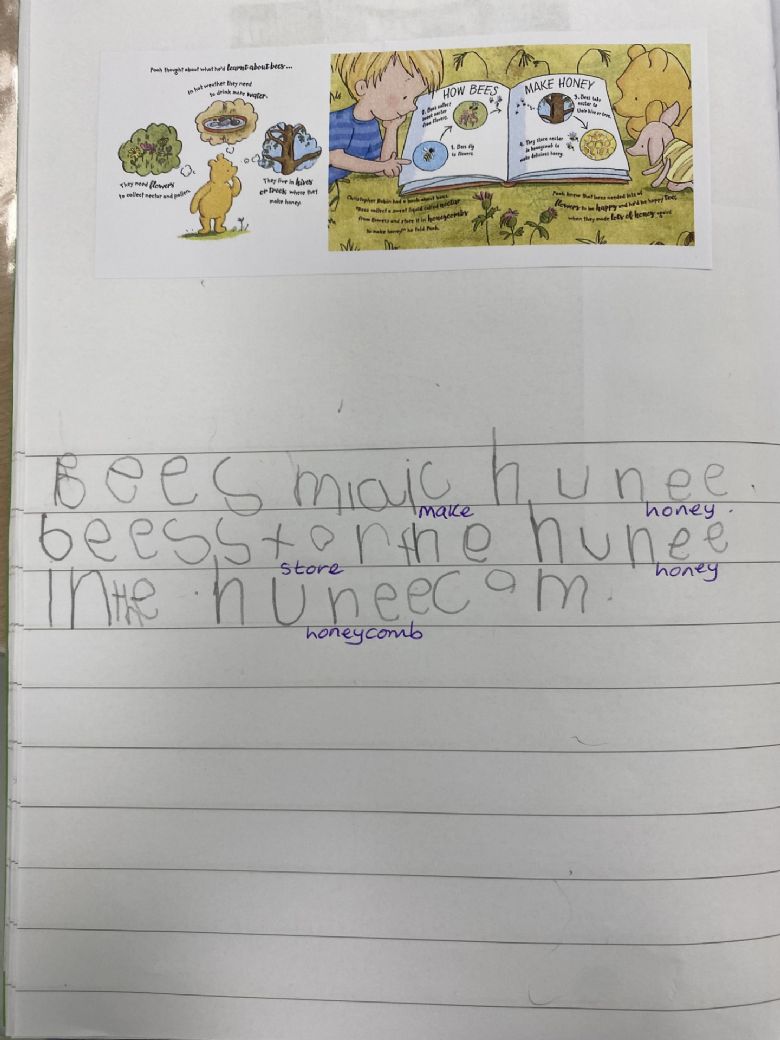 Pooh thought about what he'd learnt about bees...
In hot weather they need
to drink more water.
They need flowers
to collect nectar and pollen.
They live in hives
or trees where they
make honey.
HOW BEES
MAKE HONEY
1. Bees fly
to flowers.
2. Bees collect
sweet nectar
from flowers.
3. Bees take
nectar to
their hive or tree.
4. They store nectar
in honeycomb to
make delicious honey.
Christopher Robin had a book about bees.
"Bees collect a sweet liquid called nectar
from flowers and store it in honeycombs
to make honey!" he told Pooh.
Pooh knew that bees needed lots of
flowers to be happy and he'd be happy too,
when they made lots of honey again!
Bees miaic hunee.
make honey.
beess stor the hunee
store honey
In the huneecom.
honeycomb